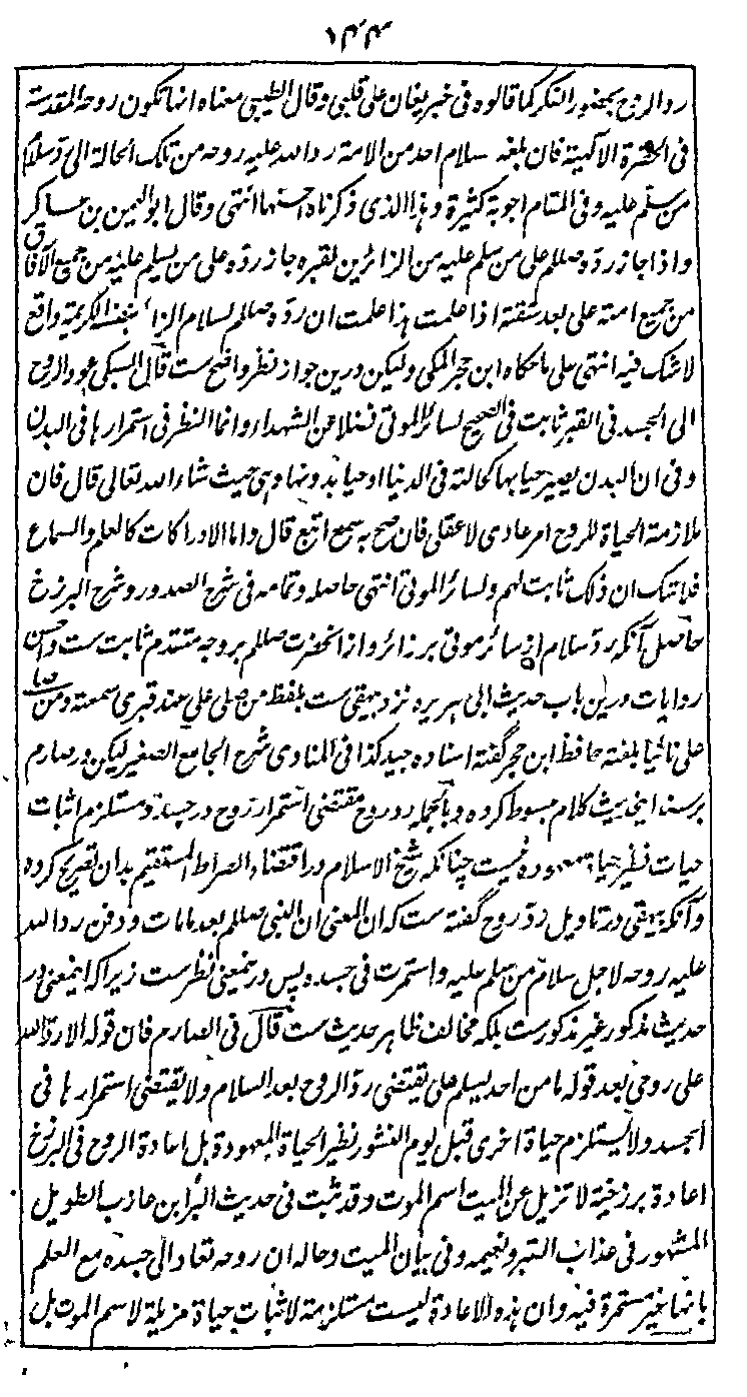 ۱۴۴
رد الروح بحضور الفکر کما قالوه فی خبر یغان علی قلبی و قال الطیبی معناه انها تکون روحه المقدسة
فی الحضرة الآلهیة فان بلغه سلام احد من الامة رد الله علیه روحه من تلک الحالة الی رد سلام
من سلم علیه و فی المقام اجوبة کثیرة و هذا الذی ذکرناه احسنها انتهی و قال ابو الیمن بن عساکر
و اذا جاز رده صللم علی من سلم علیه من الزائرین لقبره جاز رده علی من یسلم علیه من جمیع الآفاق
من جمیع امته علی بعد شقته اذا علمت هذا علمت ان رده صللم لسلام الزائر بنفسه الکریمة واقع
لا شک فیه انتهی علی ما حکاه ابن حجر المکی ولیکن درین جواز نظر واضح ست قال السبکی عود الروح
الی الجسد فی القبر ثابت فی الصحیح لسائر الموتی فضلا عن الشهداء و انما النظر فی استمرارها فی البدن
و فی ان البدن یصیر حیا بها کحالته فی الدنیا او حیا بدونها و هی حیث شاء الله تعالی قال فان
ملازمة الحیاة للروح امر عادی لا عقلی فان صح به سمع اتبع قال و اما الادراکات کالعلم والسماع
فلا شک ان ذلک ثابت لهم و لسائر الموتی انتهی حاصله و تمامه فی شرح الصدور و شرح البرزخ
حاصل آنکه رد سلام از سائر موتی بر زائر و از آنحضرت صللم بر وجه متقدم ثابت ست و احسن
روایات درین باب حدیث ابی هریره نزد بیهقی ست بلفظ من صلی علی عند قبری سمعته و من صلی
علی نائیا بلغته حافظ ابن حجر گفته اسناده جید کذا فی المناوی شرح الجامع الصغیر لیکن در صارم
بر سند این حدیث کلام مبسوط کرده و بالجمله رد روح مقتضی استمرار روح در جسد و مستلزم اثبات
حیات نظیر حیاة معهوده نیست چنانکه شیخ الاسلام در اقتضاء الصراط المستقیم بدان تصریح کرده
و آنکه بیهقی در تاویل رد روح گفته ست که ان المعنی ان النبی صللم بعد مامات و دفن رد الله
علیه روحه لاجل سلام من سلم علیه و استمرت فی جسده پس درینمعنی نظر ست زیراکه اینمعنی در
حدیث مذکور غیر مذکور ست بلکه مخالف ظاهر حدیث ست قال فی الصارم فان قوله الا رد الله
علی روحی بعد قوله ما من احد یسلم علی یقتضی رد الروح بعد السلام ولا یقتضی استمرارها فی
الجسد ولا یستلزم حیاة اخری قبل یوم النشور نظیر الحیاة المعهودة بل اعادة الروح فی البرزخ
اعادة برزخیة لا تزیل عن المیت اسم الموت و قد ثبت فی حدیث البراء بن عازب الطویل
المشهور فی عذاب القبر و نعیمه و فی بیان المیت و حاله ان روحه تعاد الی جسده مع العلم
بانها غیر مستمرة فیه و ان هذه الاعادة لیست مستلزمة لاثبات حیاة مزیلة لاسم الموت بل